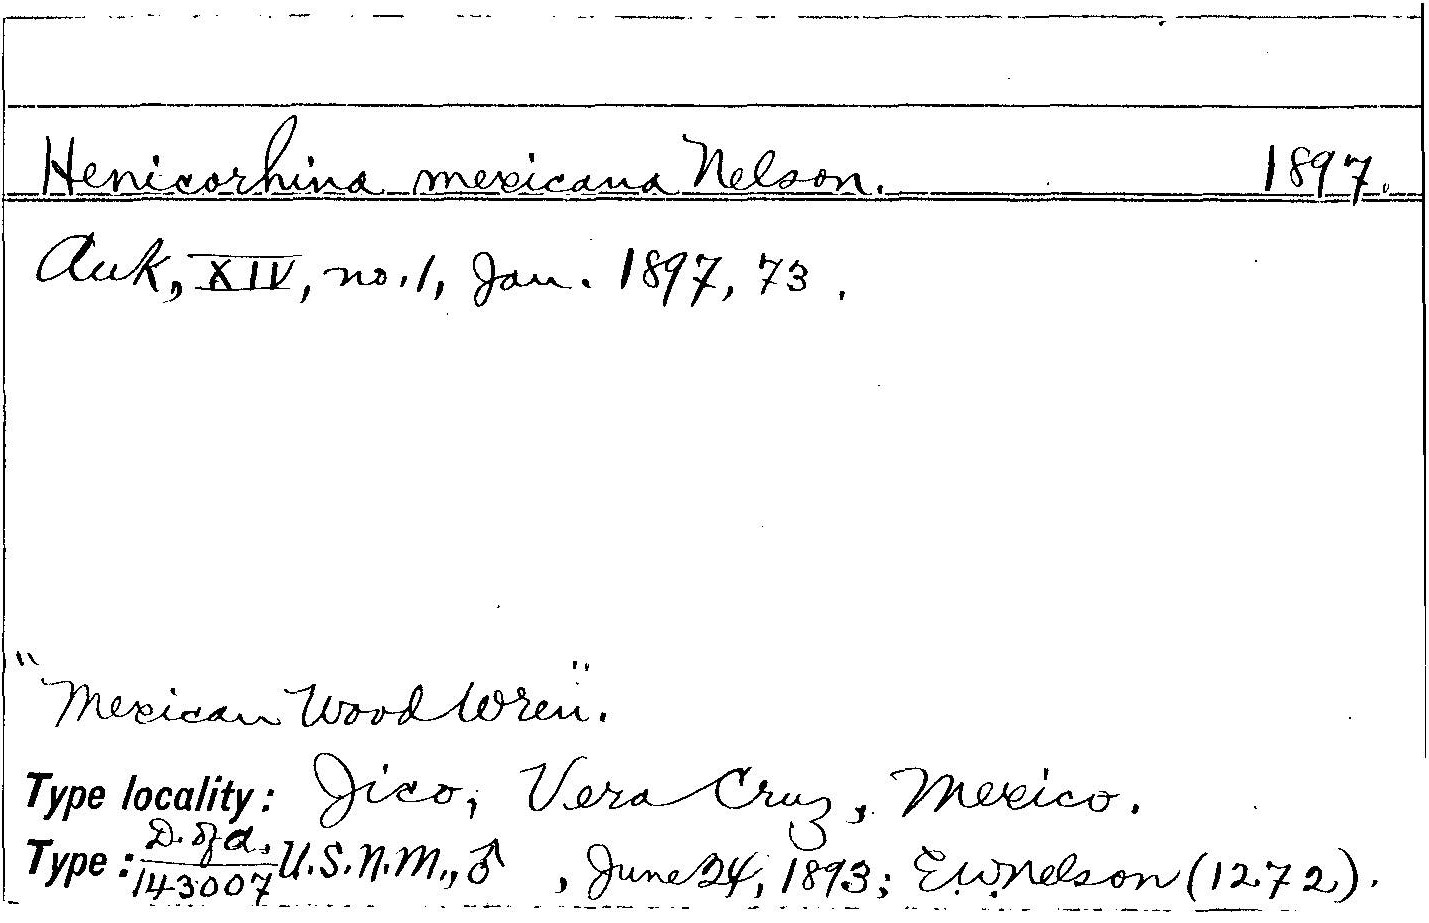 Henicorhina mexicana Nelson. 1897.
Auk, XIV, no. 1, Jan. 1897, 73.
"Mexican Wood Wren".
Type locality: Jico, Vera Cruz, Mexico.
Type: D. of A. 143007 U.S.N.M., ♂, June 24, 1893; E.W. Nelson (1272).